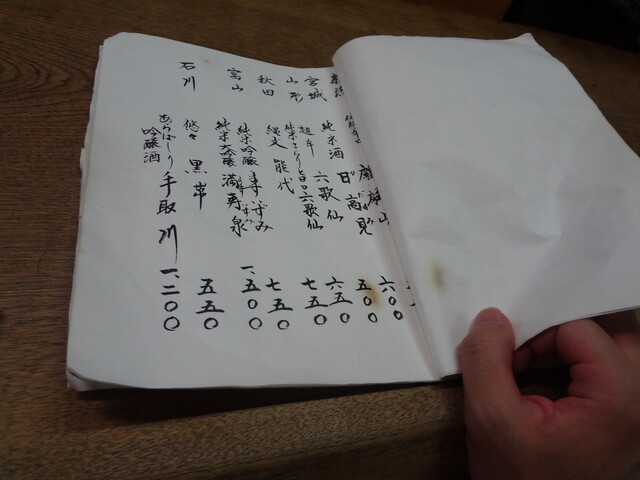 新潟 麒麟山 六〇〇
宮城 日高見 五〇〇
山形 純米酒 六歌仙 六五〇
超辛 純米さらり旨口六歌仙 七五〇
秋田 縄文 能代 七五〇
富山 純米吟醸
純米大吟醸 満寿泉 一、五〇〇
石川 悠々 黒帯 五五〇
あらばしり
吟醸酒 手取川 一、二〇〇